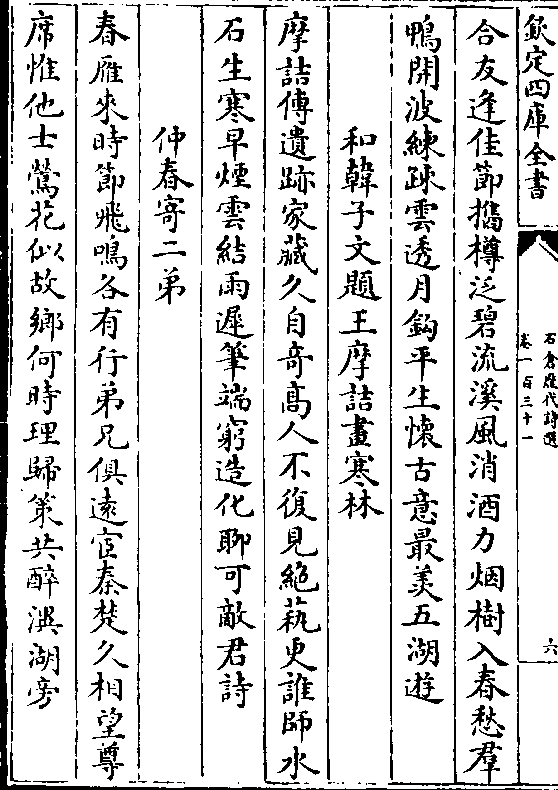 欽定四庫全書
石倉歷代詩選
卷一百三十一
六
合友逢佳節攜樽泛碧流溪風消酒力烟樹入春愁羣
鴨開波練疎雲透月鈎平生懷古意最羡五湖遊
和韓子文題王摩詰畫寒林
摩詰傳遺跡家藏久自竒高人不復見絶藝更誰師水
石生寒早煙雲結雨遲筆端窮造化聊可敵君詩
仲春寄二弟
春雁來時節飛鳴各有行弟兄俱逺宦秦楚久相望尊
席惟他士鶯花似故鄉何時理歸策共醉渼湖旁